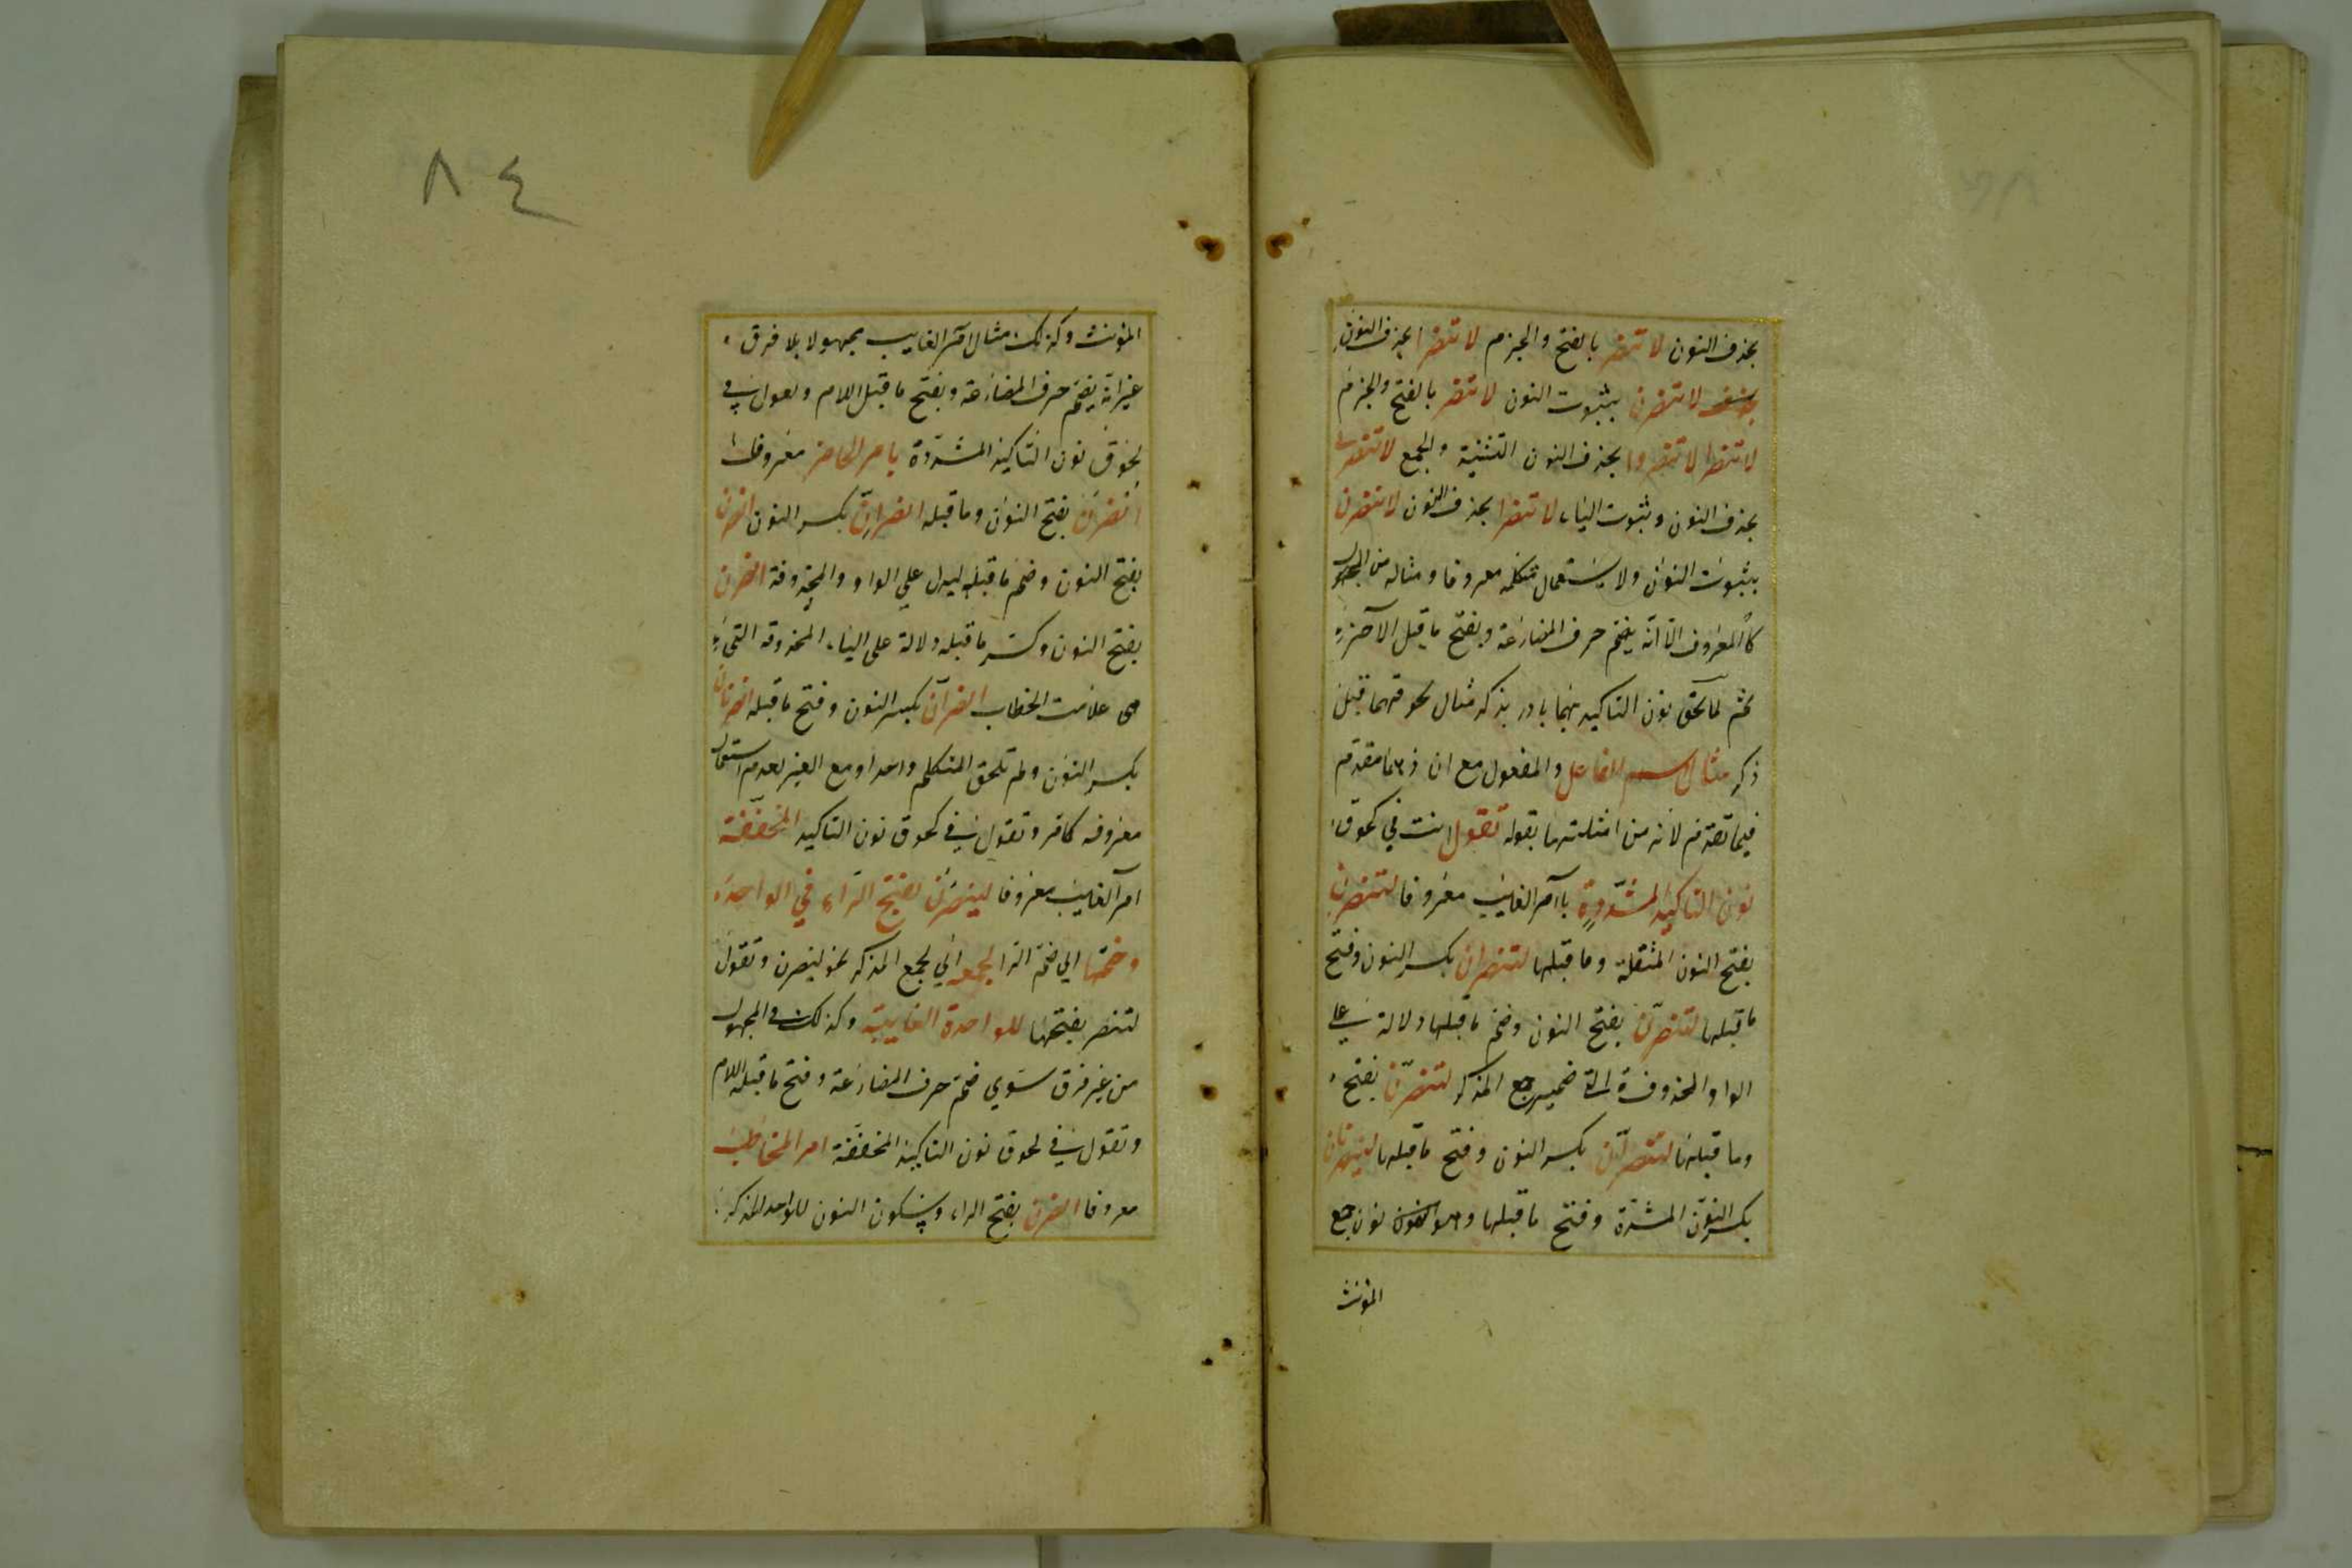 بحذف النون لا تنصر بالفتح والجزم لا تنصرا بحذف النون
لا تنصرن بثبوت النون لا تنصر بالفتح والجزم
لا تنصرا لا تنصروا بحذف النون التثنية والجمع لا تنصري
بحذف النون وثبوت الياء لا تنصرا بحذف النون لا تنصرن
بثبوت النون ولا يستعمل متكلمه معروفا ومثاله من المجهول
كالمعروف الا انه يضم حرف المضارعة ويفتح ما قبل الآخر
ثم لما لحق نون التاكيد بهما بادر بذكر مثال لحوقهما قبل
ذكر مثال اسم الفاعل والمفعول مع ان ذكرهما مقدم
فيما تقدم لانه من امثلتهما بقوله تقول انت في لحوق
نون التاكيد المشددة بامر الغايب معروفا لتنصرن
بفتح النون المثقلة وما قبلها لتنصران بكسر النون وفتح
ما قبلها لتنصرن بفتح النون وضم ما قبلها دلالة على
الواو المحذوفة التي ضمير جمع المذكر لتنصرن بفتح
وما قبلها لتنصران بكسر النون وفتح ما قبلها لينصرنان
بكسر النون المشددة وفتح ما قبلها نون جمع
المؤنث
٨٤
المؤنث وكذلك مثال امر الغايب مجهولا بلا فرق
غير انه يضم حرف المضارعة ويفتح ما قبل اللام وتقول في
لحوق نون التاكيد المشددة بامر الحاضر معروفا
انصرن بفتح النون وما قبله انصران بكسر النون انصرن
بفتح النون وضم ما قبله ليدل علي الواو والمحذوفة انصرن
بفتح النون وكسر ما قبله دلالة على الياء المحذوفة التي
هي علامت الخطاب انصران بكسر النون وفتح ما قبله انصرنان
بكسر النون ولم تلحق المتكلم واحدا ومع الغير لعدم استعمال
معروفه كامر وتقول في لحوق نون التاكيد المخففة
امر الغايب معروفا لينصرن بفتح الراء في الواحد
وضمها اي ضم الرا لجمعه اي لجمع المذكر نحو لينصرن وتقول
لتنصر بفتحها للواحدة الغايبة وكذلك في المجهول
من غير فرق سوي ضم حرف المضارعة وفتح ما قبل اللام
وتقول في لحوق نون التاكيد المخففة امر المخاطب
معروفا انصرن بفتح الراء وسكون النون للواحد المذكر